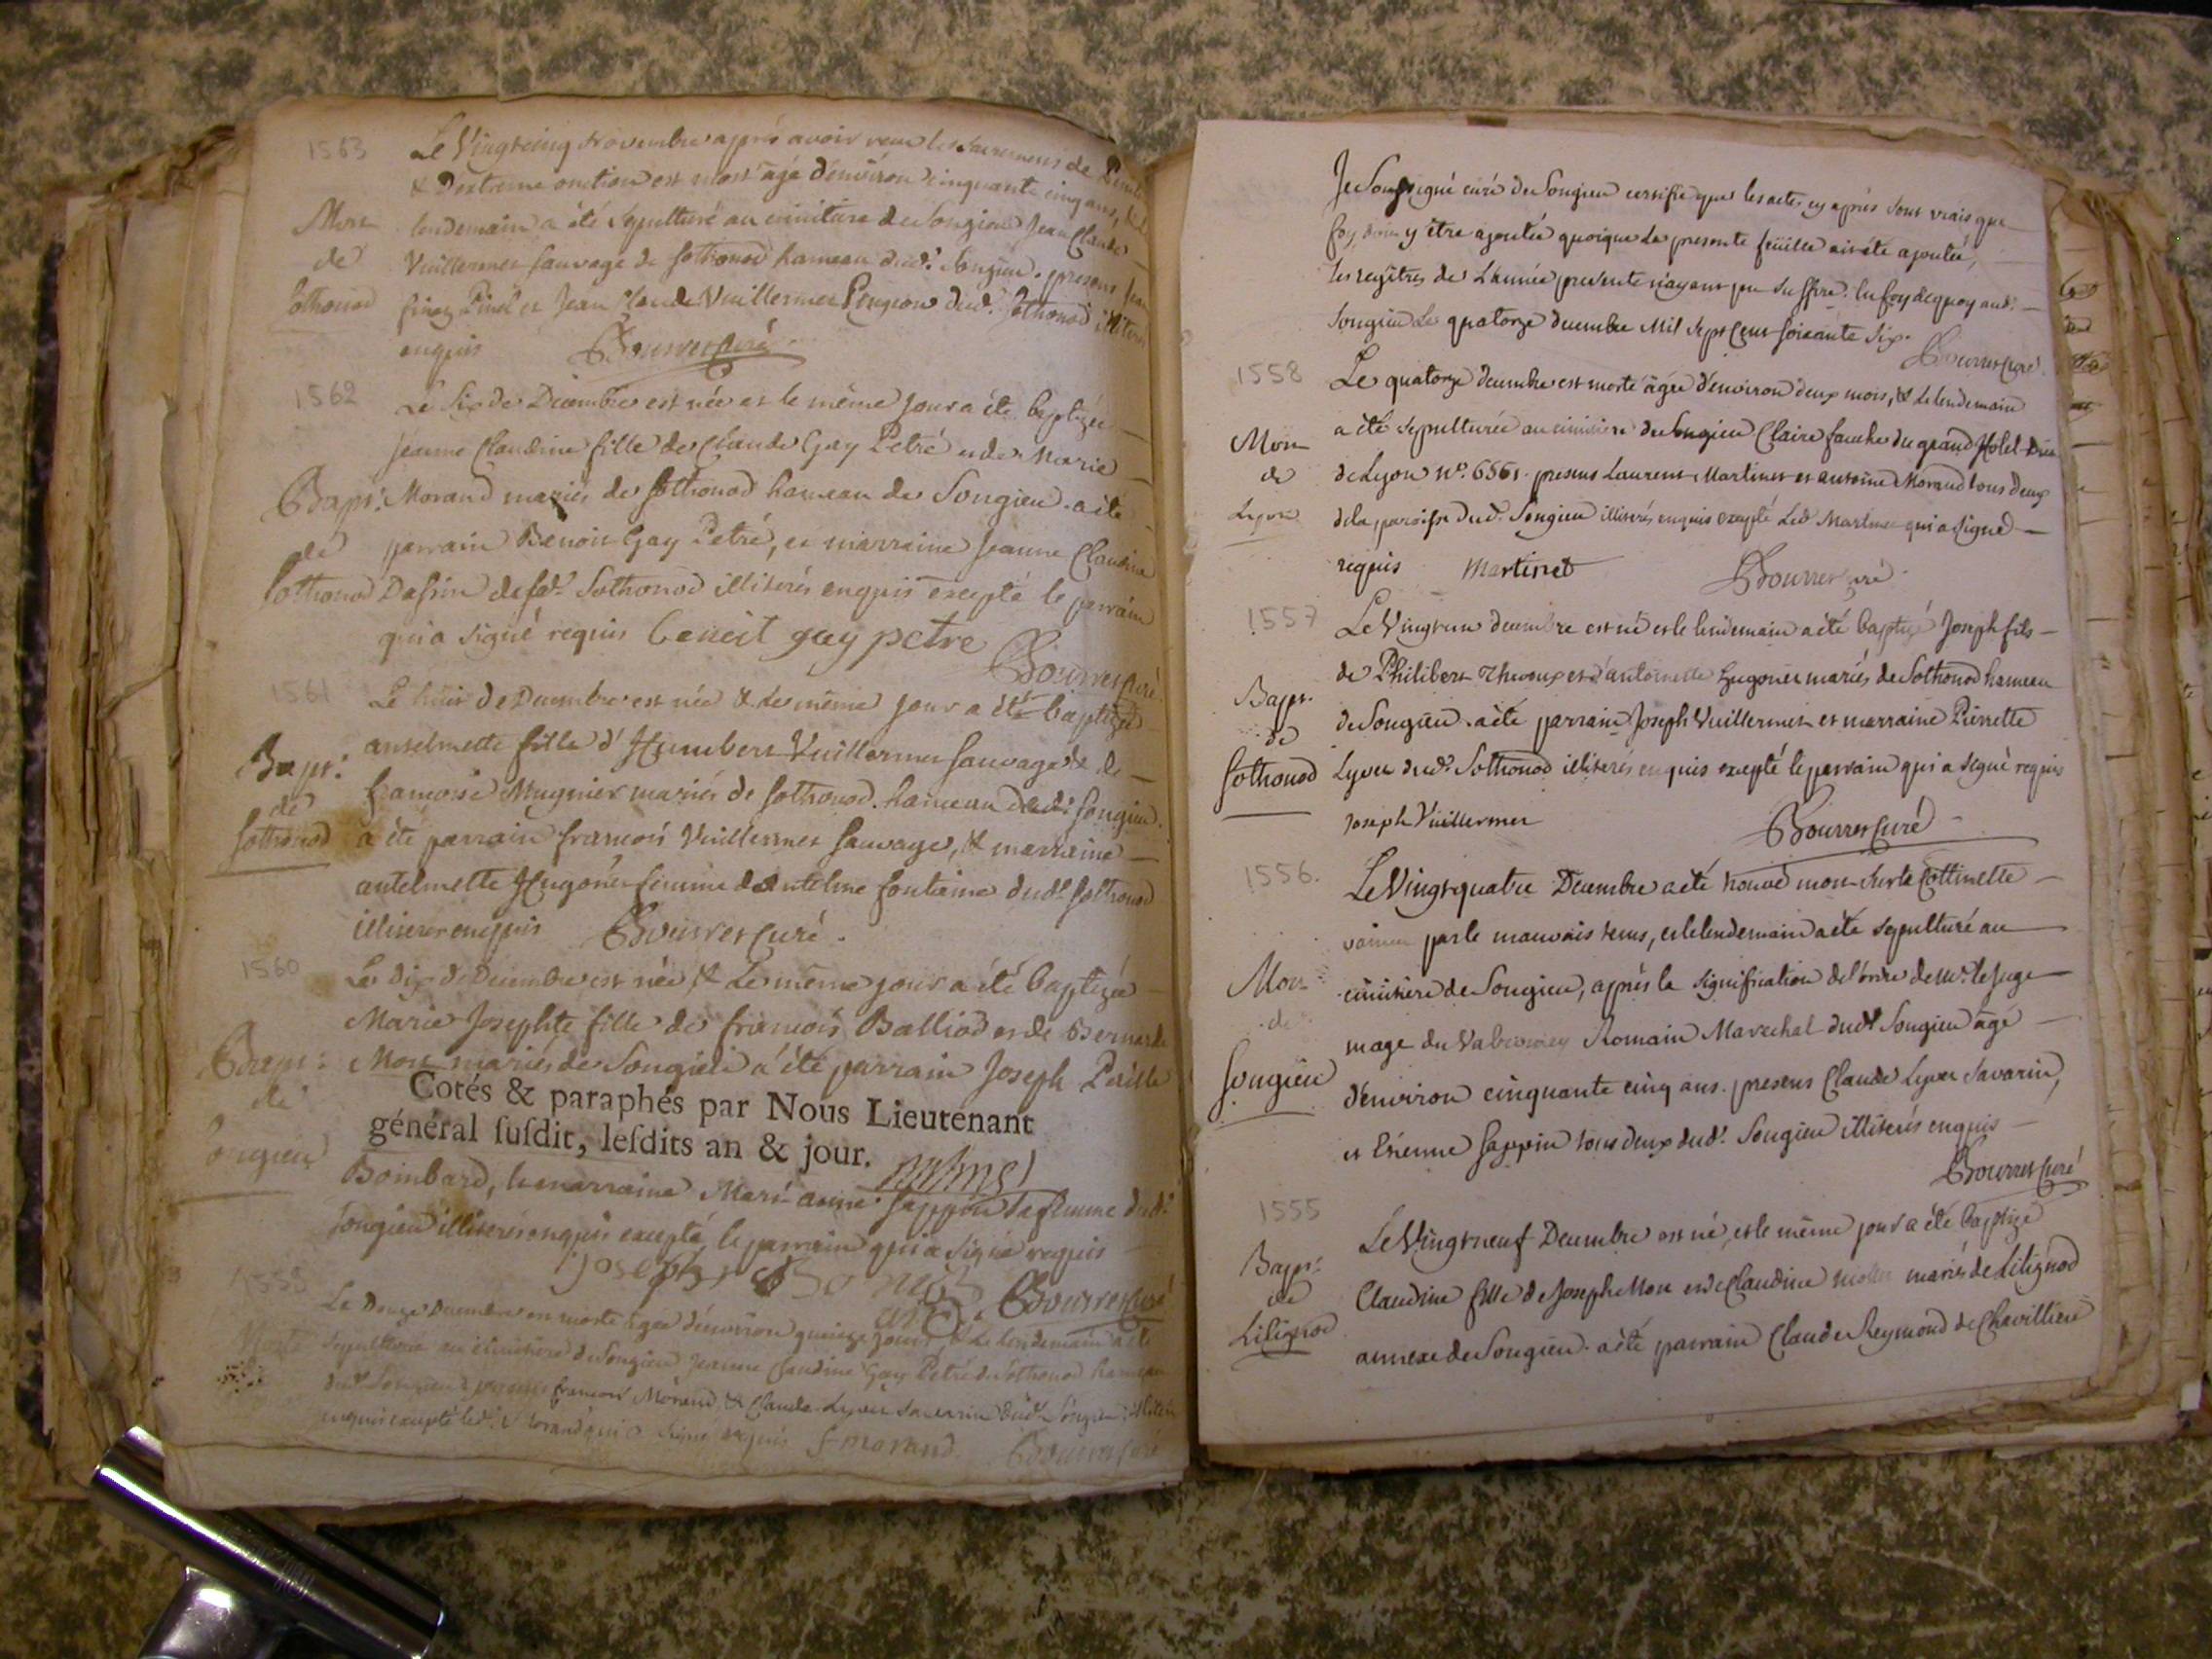 1563
Le Vingtcinq Novembre après avoir reçu les sacremens de
& D'extreme onction est mort agé d'environ cinquante cinq ans,
Mort
lendemain a été sepulturé au cimitiere de Songieu Jean Claude
de
Vuillermet sauvage de Sothonod hameau dud.t Songieu. presens
Sothonod
Pinel et Jean Claude Vuillermet dud.t Sothonod
enquis Bourret Curé
1562
Le Six de Decembre est née et le même jour a été baptizée
Jeanne Claudine fille de Claude Gay Petré et de Marie
Bapt.
Morand mariés de Sothonod hameau de Songieu. a été
de
parrain Benoit Gay Petré, et marraine Jeanne Claudine
Sothonod
Dassin de Sothonod illiterés enquis excepté le parrain
qui a signé requis benoit gay petre
Bourret Curé
1561
Le huit de Decembre est née & le même jour a été baptizée
anselmette fille d'Humbert Vuillermet Sauvage & de
Bapt:
francoise Mugnier mariés de Sothonod. hameau dud.t Songieu.
de
Sothonod
a été parrain francois Vuillermet Sauvage, & marraine
antelmette Hugonet femme d'antelme fontaine dud.t Sothonod
illiterés enquis Bourret Curé.
1560
Le dix de Decembre est née, & Le même jour a été baptizée
Marie Josephte fille de francois Balliod et de Bernarde
Bapt:
Mon mariés de Songieu a été parrain Joseph
de
Cotés & paraphés par Nous Lieutenant
général ſuſdit, leſdits an & jour.
Songieu
Bombard, & marraine Marianne Sappin sa femme dud.t
Songieu illiterés enquis excepté le parrain qui a signé requis
joseph
Bourret Curé
Le Douze Decembre est morte agée d'environ quinze jours, & Le lendemain a été
Morte
sepulturée au cimitiere de Songieu Jeanne Claudine Gay Petré de Sothonod hameau
dud.t Songieu presens francois Morand, & Claude Lyvet Savarin dud.t Songieu
enquis excepté led.t Morand qui a signé requis f morand. Bourret Curé
Je Soussigné curé de Songieu certifie que les actes cy après sont vrais que
foy doit y être ajoutée quoique la presente feüille ait été ajoutée,
les regîtres de L'année presente n'ayant pu suffire. En foy dequoy aud.t
Songieu Le quatorze decembre Mil sept Cent soixante six.
Bourret Curé.
1558
Le quatorze decembre est morte agée d'environ deux mois, & le lendemain
a été sepulturée au cimitiere de Songieu Claire fauche du grand Hôtel-Dieu
Mort
de
de Lyon N°. 6561. presens Laurent Martinet et antoine Morand tous deux
Lyon
de la paroisse dud.t Songieu illiterés enquis excepté Led.t Martinet qui a signé
requis Martinet Bourret curé.
1557
Le Vingt un decembre est né et le lendemain a été baptizé Joseph fils
de Philibert et d'antoinette Hugonet mariés de Sothonod hameau
Bapt.
de
de Songieu. a été parrain Joseph Vuillermet et marraine Pierrette
Sothonod
Lyvet dud.t Sothonod illiterés enquis excepté le parrain qui a signé requis
Joseph Vuillermet Bourret Curé
1556.
Le Vingt quatre Decembre a été trouvé mort sur la Cottinette
par le mauvais tems, et le lendemain a été sepulturé au
Mort
cimitiere de Songieu, après la signification de l'ordre de Mr. le Juge
de
mage du Valromey Romain Marechal dud.t Songieu agé
Songieu
d'environ cinquante cinq ans. presens Claude Lyvet Savarin,
et Etienne Sappin tous deux dud.t Songieu illiterés enquis
Bourret Curé
1555
Le Vingt neuf Decembre est né, et le même jour a été baptizé
Bapt.
de
Claudine fille de Joseph Mon et de Claudine mariés de Lilignod
Lilignod
annexe de Songieu. a été parrain Claude Reymond de Chavilliere